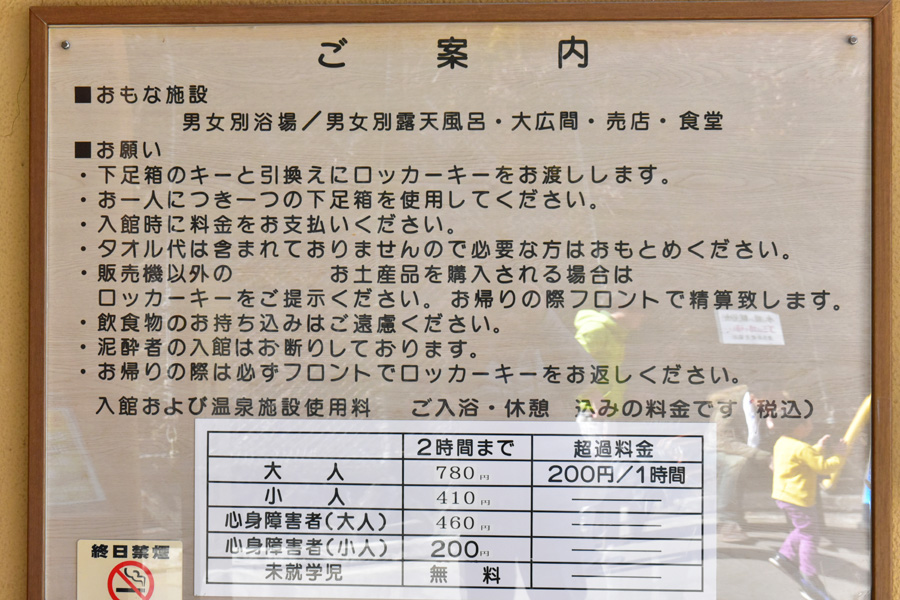 ご案内
■おもな施設
男女別浴場／男女別露天風呂・大広間・売店・食堂
■お願い
・下足箱のキーと引換えにロッカーキーをお渡しします。
・お一人につき一つの下足箱を使用してください。
・入館時に料金をお支払いください。
・タオル代は含まれておりませんので必要な方はおもとめください。
・販売機以外の　　　　お土産品を購入される場合は
ロッカーキーをご提示ください。お帰りの際フロントで精算致します。
・飲食物のお持ち込みはご遠慮ください。
・泥酔者の入館はお断りしております。
・お帰りの際は必ずフロントでロッカーキーをお返しください。
入館および温泉施設使用料　ご入浴・休憩　込みの料金です（税込）
2時間まで 超過料金
大人 780円 200円／1時間
小人 410円
心身障害者（大人） 460円
心身障害者（小人） 200円
未就学児 無料
終日禁煙